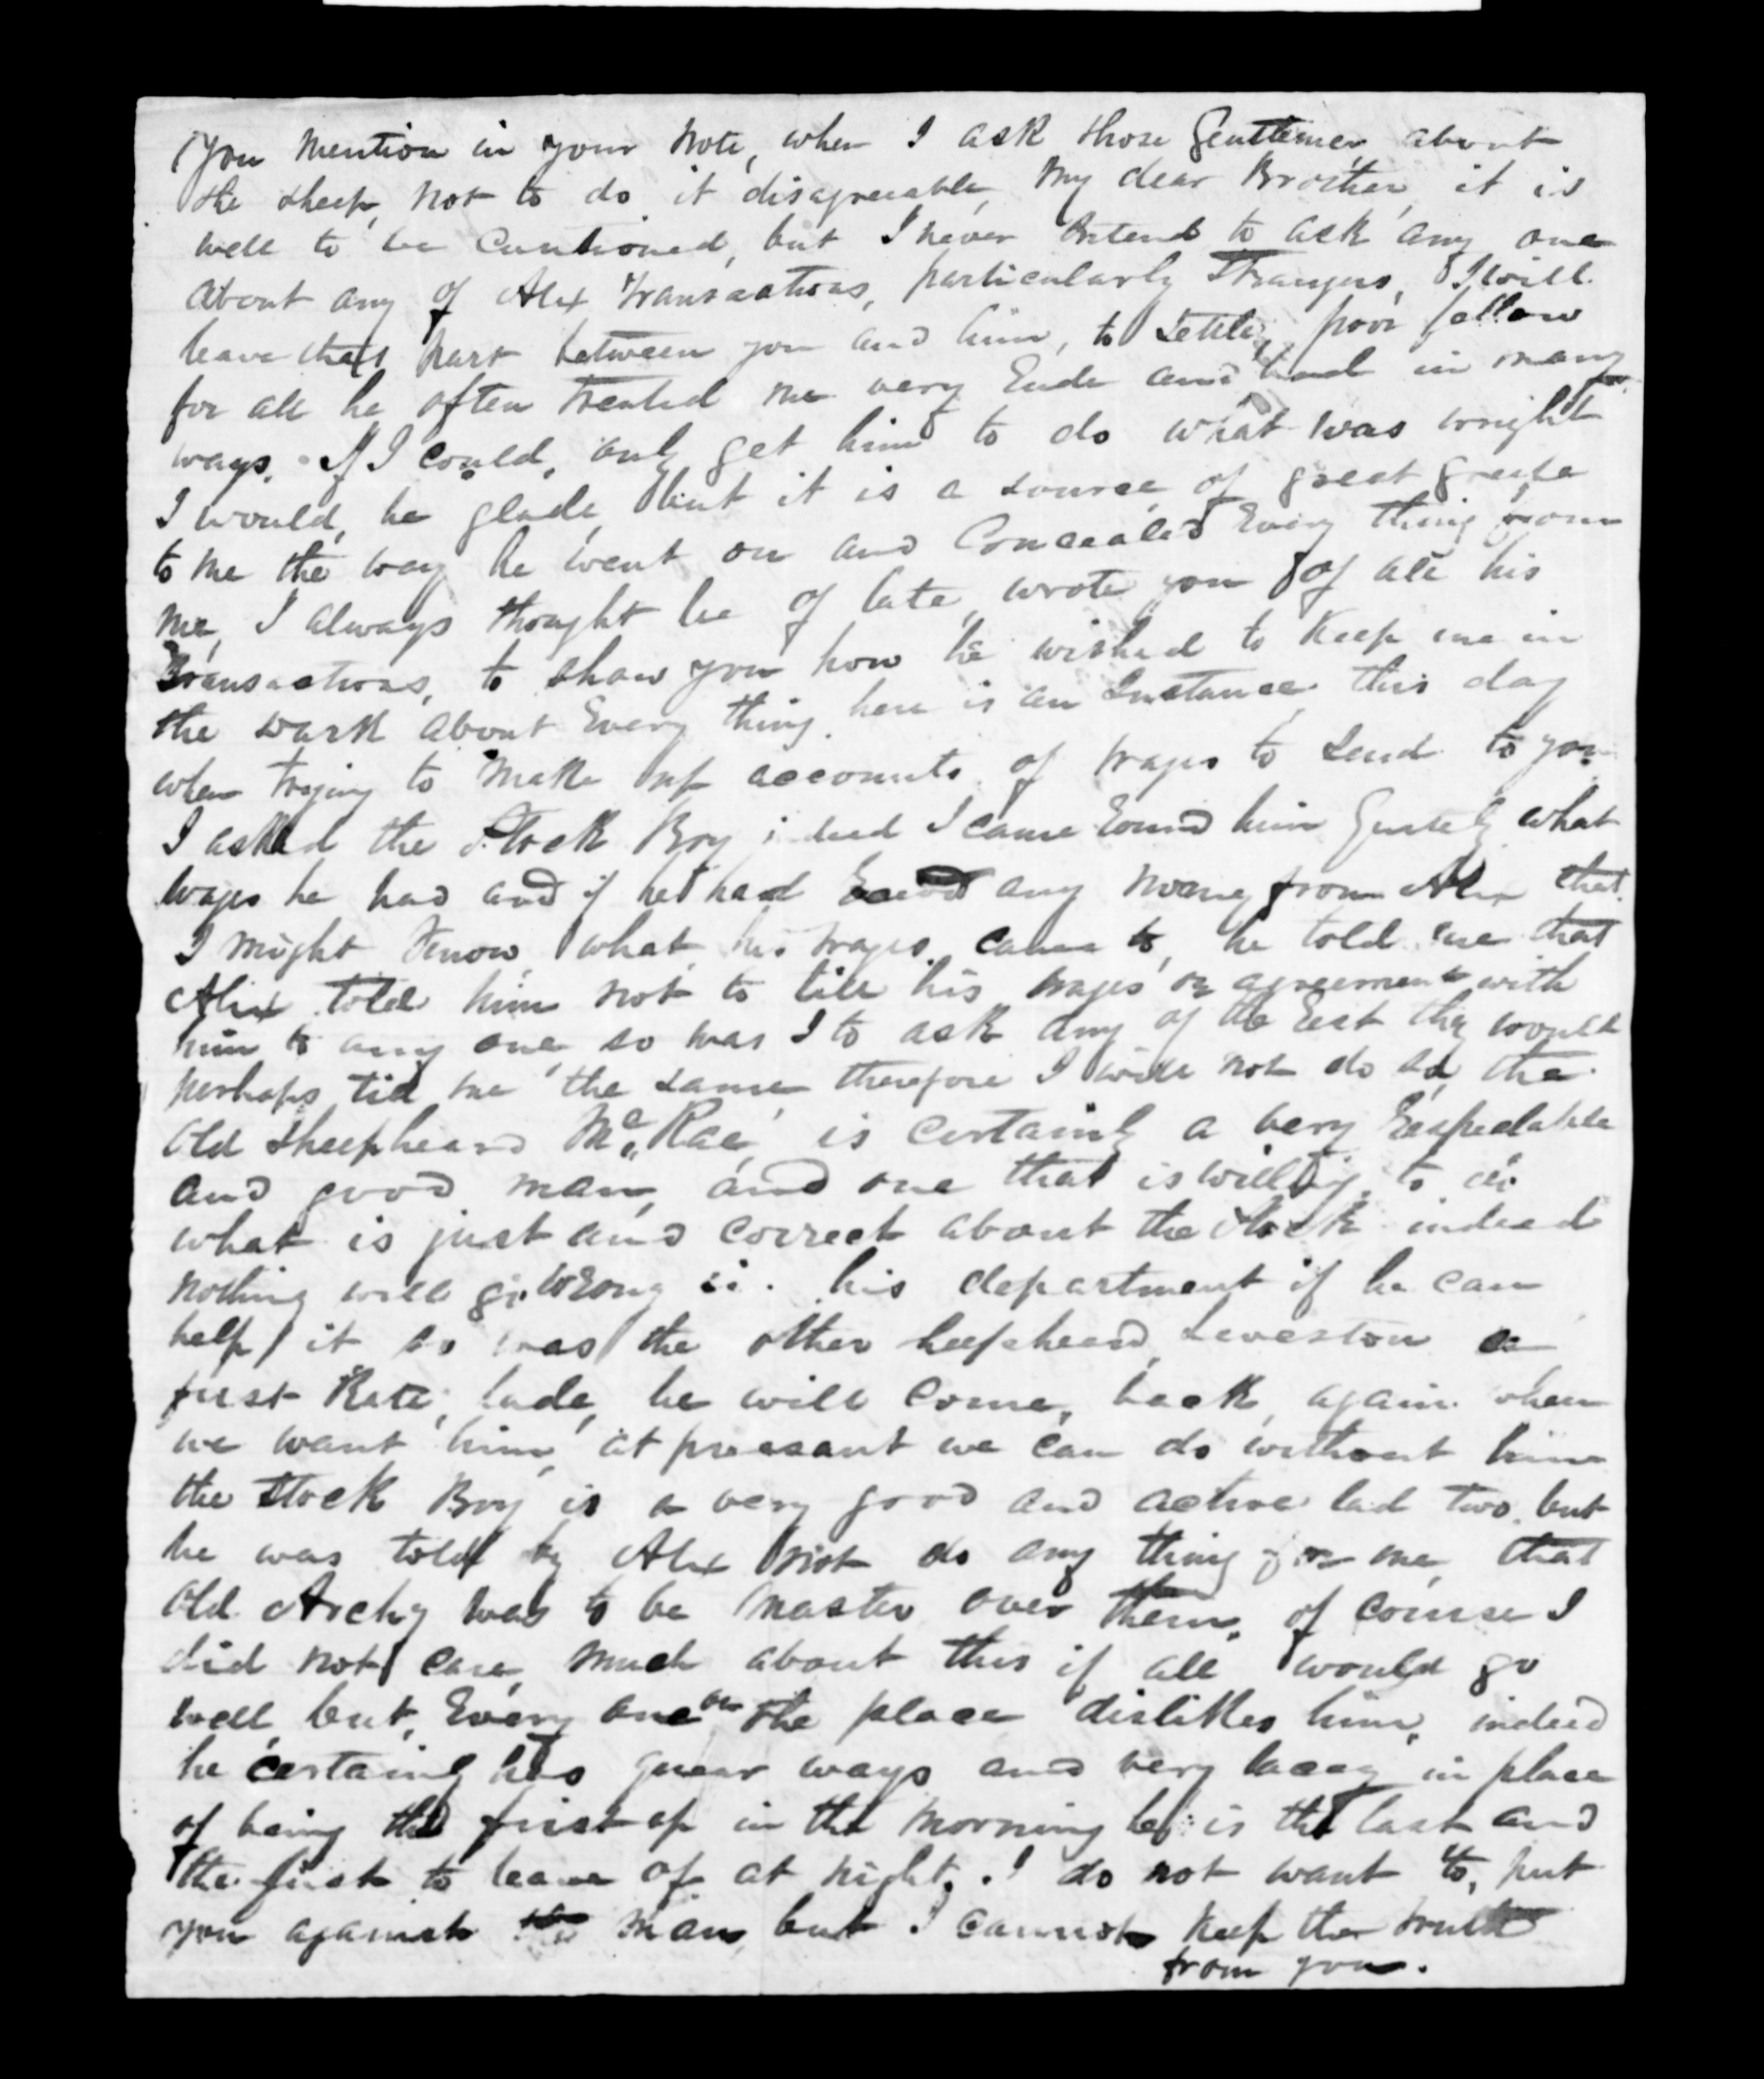 You mention in your Note, when I ask those Gentlemen about
the sheep, not to do it disagreeable, My dear Brother, it is
well to be Cautioned, but I never Intend to ask any one
about any of Alex Transactions, particularly Strangers, I will
leave that part between you and him, to Settle, poor fellow
for all he often treated me very Rude and bad in many
ways. If I could, only get him to do what was wright
I would, be glade, but it is a source of great greafe
to me the way he went on and Concealed Every thing from
me, I always thought he of late, wrote you of all his
Transactions, to show you how he wished to Keep me in
the dark about Every thing. here is an Instance, this day
when trying to make up accounts of wages to Send to you
I asked the Stock Boy; I came round him Gentely what
wages he had and if he had any money from Alex that
I might Know what his wages came to, he told me that
Alix told him not to tell his wages or agreement with
him to any one, so was I to ask any of the Rest they would
perhaps tell me the same, therefore I will not do so, the
Old Sheepheard Mc Rae, is Certainly a very Respectable
and good man, and one that is willing to do
what is just and correct about the stock indeed
nothing will go wrong in his department if he can
help it so was the other heepheard Leveston a
first Rate, lade, he will Come, back, again when
we want him, at preasant we can do without him
the Stock Boy is a very good and active lad two, but
he was told by Alex not do any thing for me, that
Old Archy was to be master over them. of course I
did not care, much about this if all would go
well, but, Every one on the place dislikes him, indeed
he certainly has quear ways and very lacey in place
of being the first up in the Morning he is the last and
the first to leave of at night. I do not want to, put
you against the man, but I cannot Keep the truth
from you.